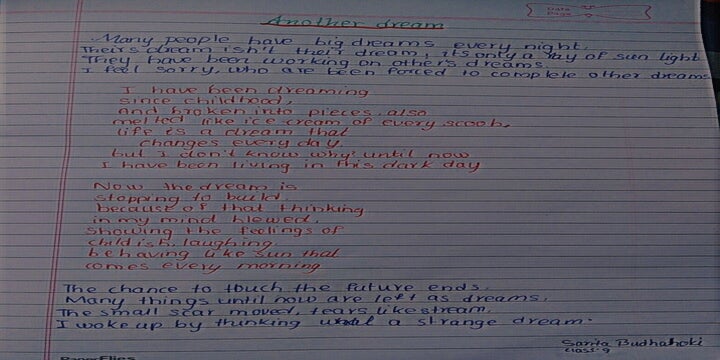 Date
Page
Another dream
Many people have big dreams every night.
Theirs dream isn't their dream, its only a ray of sun light
They have been working on other's dreams.
I feel sorry, who are been forced to complete other dreams
I have been dreaming
since childhood,
And broken into pieces, also
melted like ice cream of every scoob,
life is a dream that
changes every day.
but I don't know why? until now
I have been living in this dark day
Now the dream is
stopping to build.
because of that thinking
in my mind blewed.
showing the feelings of
childish, laughing.
behaving like sun that
comes every morning
The chance to touch the future ends.
Many things until now are left as dreams.
The small scar moved, tears like stream.
I woke up by thinking a strange dream.
Sarita Budhathoki
class: 9
PaperFlies